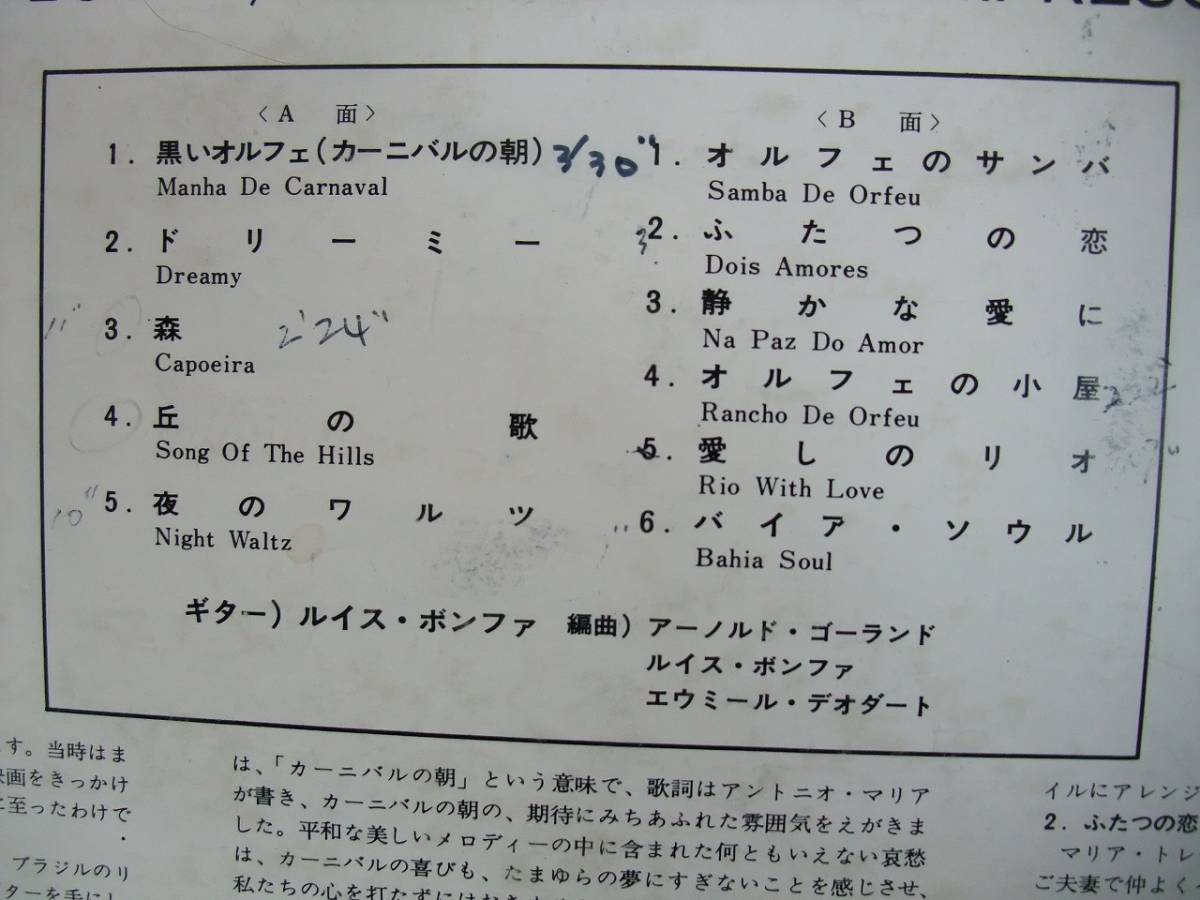 〈A 面〉
1. 黒いオルフェ(カーニバルの朝) 3/30"
Manha De Carnaval
2. ドリーミー
Dreamy
11"
3. 森 2'24"
Capoeira
4. 丘の歌
Song Of The Hills
10"
5. 夜のワルツ
Night Waltz
〈B 面〉
1. オルフェのサンバ
Samba De Orfeu
2. ふたつの恋
Dois Amores
3. 静かな愛に
Na Paz Do Amor
4. オルフェの小屋
Rancho De Orfeu
5. 愛しのリオ
Rio With Love
6. バイア・ソウル
Bahia Soul
ギター) ルイス・ボンファ 編曲) アーノルド・ゴーランド
ルイス・ボンファ
エウミール・デオダート
す。当時はま
映画をきっかけ
に至ったわけで
・
ブラジルのリ
ターを手にし
は、「カーニバルの朝」という意味で、歌詞はアントニオ・マリア
が書き、カーニバルの朝の、期待にみちあふれた雰囲気をえがきま
した。平和な美しいメロディーの中に含まれた何ともいえない哀愁
は、カーニバルの喜びも、たまゆらの夢にすぎないことを感じさせ、
私たちの心を打たずにはおきま
イルにアレンジ
2. ふたつの恋
マリア・トレ
ご夫妻で仲よく